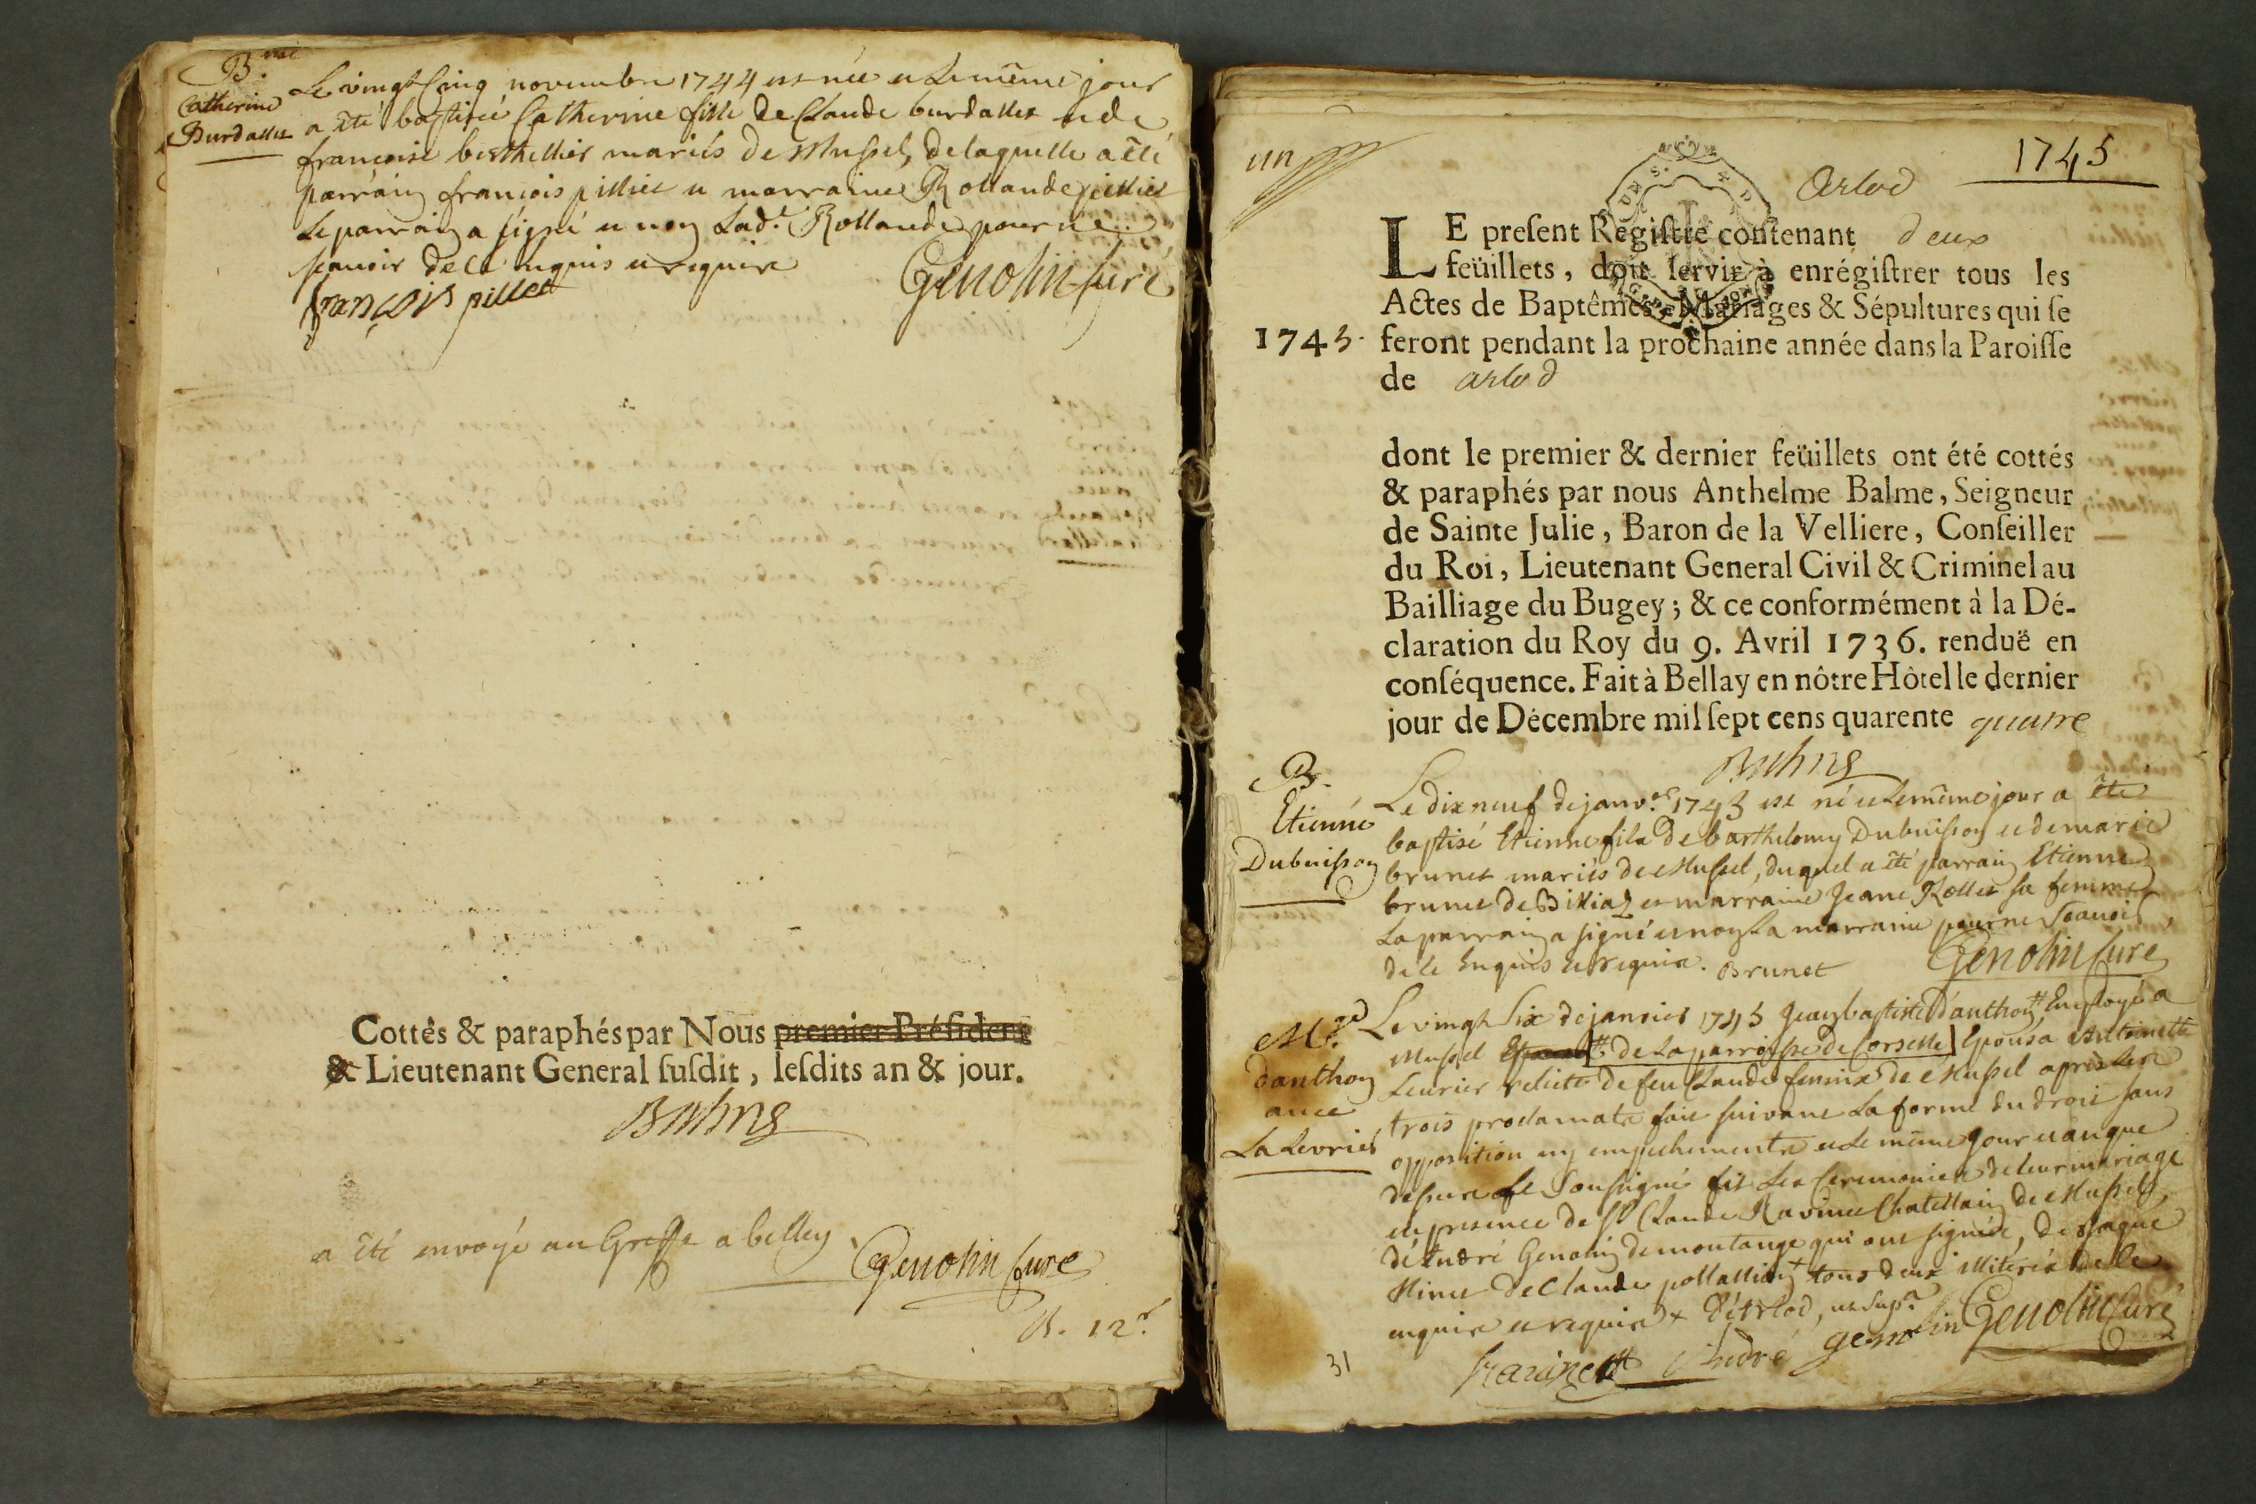 B.me
Catherine
Burdallet
Le vingt Cinq novembre 1744 est née et Le même jour
a été baptisée Catherine fille de Claude burdallet et de
françoise berthellier mariés de Mussel, de laquelle a été
parrain françois pilliet et marraine Rollande pilliet
Le parrain a signé et non Lad.e Rollande pour ne
sçauoir de ce enquis et requise
françois pillet Genolin Curé
Cottés & paraphés par Nous premier Président
& Lieutenant General suſdit, leſdits an & jour.
a été envoyé au Greffe a belley
Genolin Curé
B. 12.
un
1745
Arlod
LE preſent Regiſtre contenant deux
feüillets, doit ſervir à enrégiſtrer tous les
Actes de Baptêmes, Mariages & Sépultures qui ſe
1745. feront pendant la prochaine année dans la Paroiſſe
de arlod
dont le premier & dernier feüillets ont été cottés
& paraphés par nous Anthelme Balme, Seigneur
de Sainte Julie, Baron de la Velliere, Conſeiller
du Roi, Lieutenant General Civil & Criminel au
Bailliage du Bugey; & ce conformément à la Dé-
claration du Roy du 9. Avril 1736. renduë en
conſéquence. Fait à Bellay en nôtre Hôtel le dernier
jour de Décembre mil ſept cens quarente quatre
B.
Etienne
Dubuisson
Le dix neuf de janv.er 1745 est né et Le même jour a été
baptisé Etienne fils de barthelemy Dubuisson et de marie
brunet mariés de Mussel, duquel a été parrain Etienne
brunet de Billiaz et marraine Jeane Rollet sa femme
Le parrain a signé et non La marraine pour ne Scauoir
de ce Enquis et requis. Brunet Genolin Curé
M.ge
danthon
avec
La Levrier
Le vingt Six de janvier 1745 Jean baptiste d'anthon Employé a
Mussel de La parroisse de Corcelle Epousa Antoinette
Leurier relicte de feu Claude de Mussel après Les
trois proclamats fais suivant La forme du droit sans
opposition ny empechements et Le même jour et an que
dessus Je Soussigné fit Les Ceremonies de leur mariage
en presence de S.r Claude Ravinet Chatellain de Mussel,
d'André Genolin de montange qui ont signés, de jaque
Ninet de Claude tous deux illiterés de ce
enquis et requis d'Arlod, ut sup.a
Ravinet André genolin Genolin Curé
31